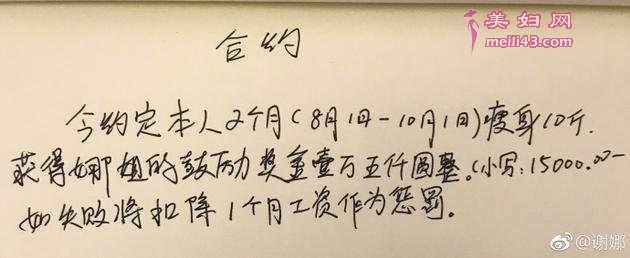 美妇网
meili43.com
合约
今约定本人2个月(8月1日-10月1日)瘦身10斤.
获得娜姐的鼓励奖金壹万五仟圆整。(小写:15000.00-
如失败将扣除1个月工资作为惩罚。
@谢娜